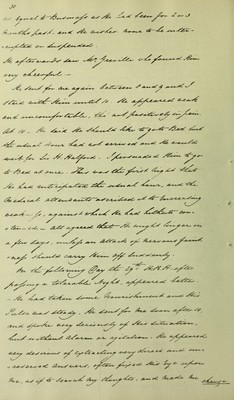 30
as equal to Business as He had been for 2 or 3
months past, and He wishes none to be inter-
-rupted or suspended.
He afterwards saw Mr Greville who found Him
very cheerful—
He sent for me again between 8 and 9 and I
staid with Him until 10. He appeared weak
and uncomfortable, tho' not positively in pain.
At 10. He said He should like to go to Bed but
the usual hour had not arrived and He would
wait for Sir H. Halford. I persuaded Him to go
to Bed at once. This was the first night that
He had anticipated the usual hour, and the
Medical attendants ascribed it to increasing
weak-s, against which He had hitherto con-
-tended— all agreed that He might linger on
a few days, unless an attack of nervous faint
-ness should carry Him off suddenly.
On the following Day the 29th H.R.H. after
passing a tolerable Night, appeared better
- He had taken some Nourishment and His
Pulse was steady. He sent for me down after 10.
and spoke very seriously of His situation,
but without alarm or agitation. He appeared
very desirous of extracting very direct and un-
-reserved answers, often fixed His Eye upon
me, as if to search my thoughts, and made me
change